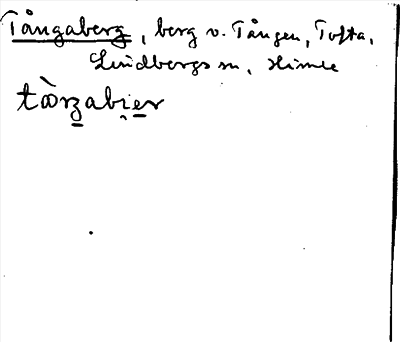 Tångaberg, berg v. Tången, Tofta,
Lindbergs sn, Himle
tàrzabier